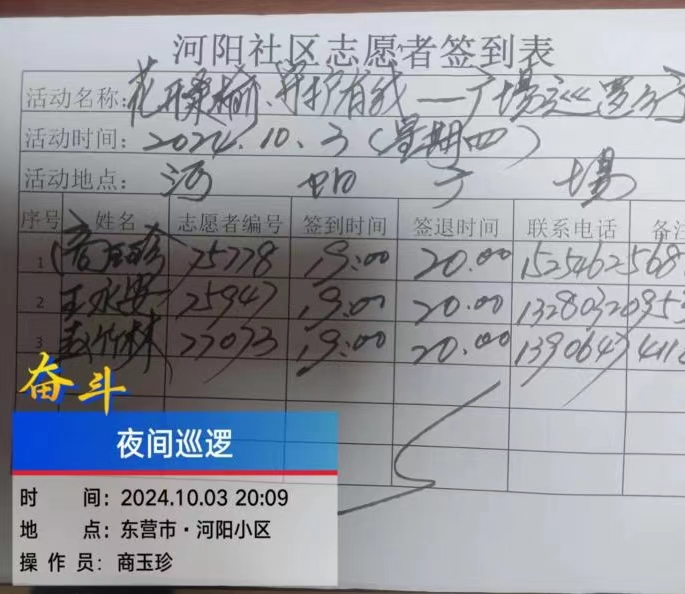 河阳社区志愿者签到表
活动名称:花样桑榆、守护有我—广场巡逻
活动时间: 2024.10.3(星期四)
活动地点: 河阳广場
序号 姓名 志愿者编号 签到时间 签退时间 联系电话 备注
1 商玉珍 75778 19:00 20.00 1525462568
2 王永安 75947 19:00 20.00 1328032095
3 竹林 77073 19:00 20.00 13906434
奋斗
夜间巡逻
时 间: 2024.10.03 20:09
地 点: 东营市·河阳小区
操作员: 商玉珍